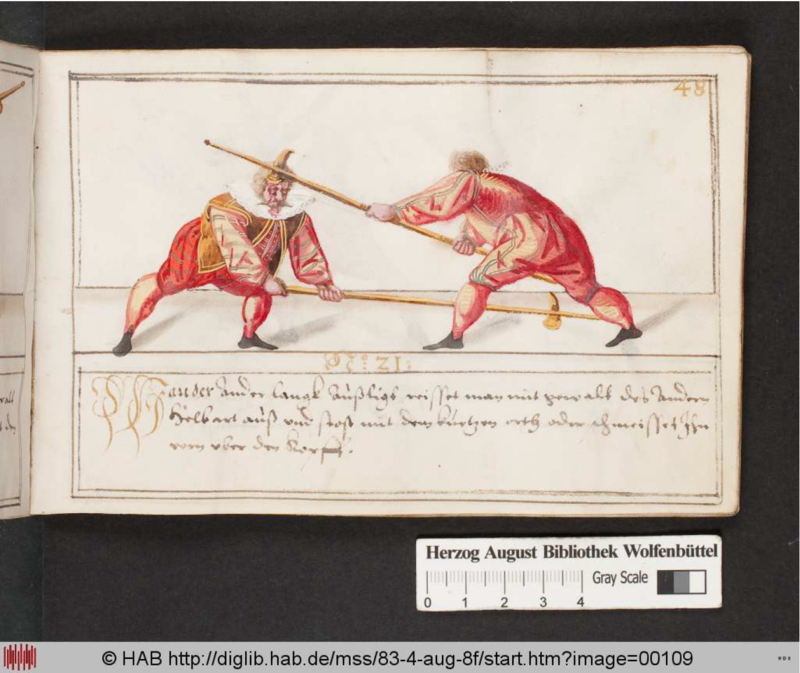 48
No. 21.
Wan der ander langk außligt reisset man mit gewalt des andern
Helbart auß und stost mit dem kurtzen orth oder schmeisset Ihn
vorn uber den Kopff.
Herzog August Bibliothek Wolfenbüttel
Gray Scale
0 1 2 3 4
© HAB http://diglib.hab.de/mss/83-4-aug-8f/start.htm?image=00109